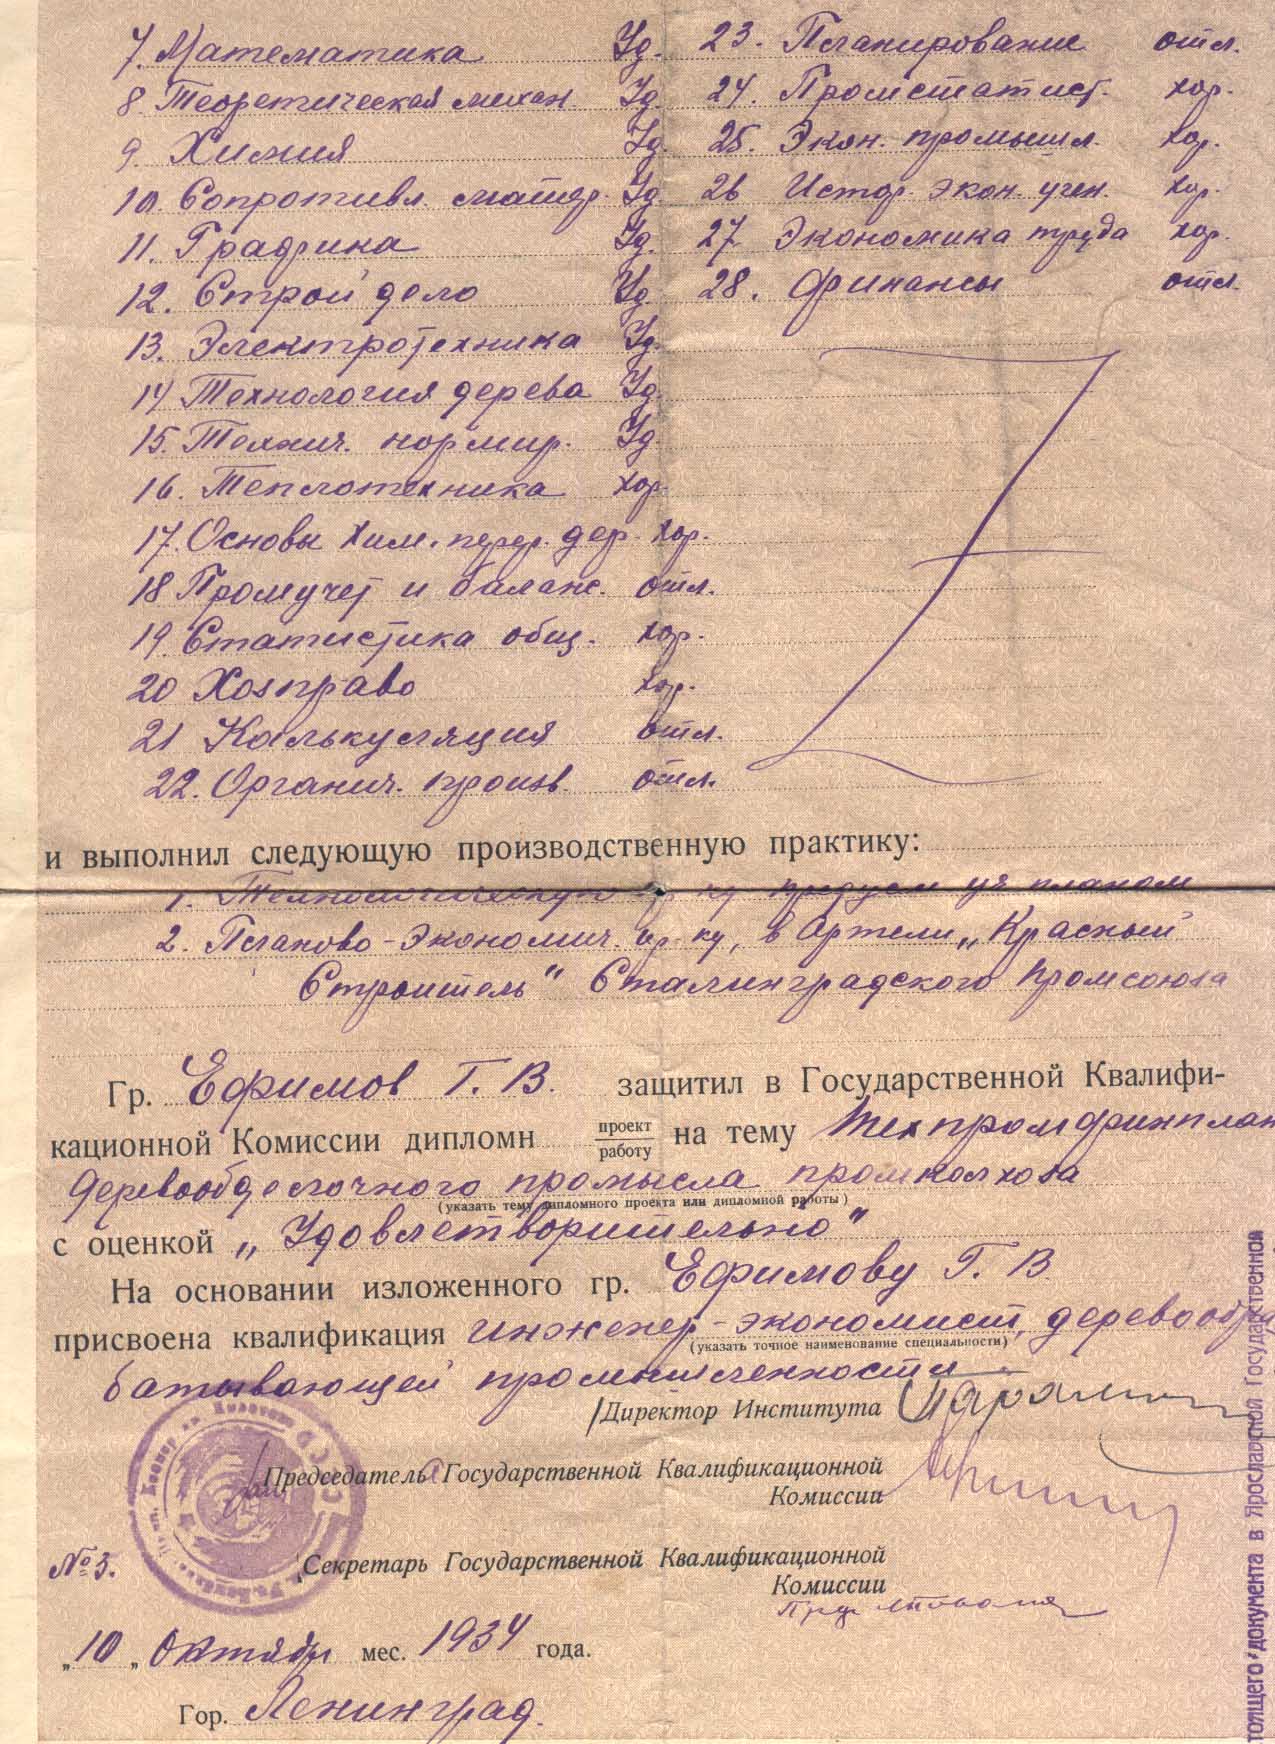 7. Математика Уд.
8. Теоретическая механ. Уд.
9. Химия Уд.
10. Сопротивл. матер. Уд.
11. Графика Уд.
12. Строй дело Уд.
13. Электротехника Уд.
14 Технология дерева Уд.
15. Технич. нормир. Уд.
16. Теплотехника хор.
17. Основы хим. перер. дер. хор.
18 Промучет и баланс. отл.
19. Статистика общ. хор.
20 Хозправо хор.
21 Калькуляция отл.
22. Организ. произв. отл.
23. Планирование отл.
24. Промстатист. хор.
25. Экон. промышл. хор.
26 Истор. экон. учен. хор.
27. Экономика труда хор.
28. Финансы отл.
и выполнил следующую производственную практику:
1. Технологическую пр-ку предусм уч. планом
2. Планово-Экономич. пр-ку, в Артели „Красный
Строитель" Сталинградского Промсоюза
Гр. Ефимов Г. В. защитил в Государственной Квалифи-
кационной Комиссии дипломн проект
работу на тему Техпромфинплан
деревообделочного промысла промколхоза
(указать тему дипломного проекта или дипломной работы)
с оценкой „Удовлетворительно"
На основании изложенного гр. Ефимову Г. В.
присвоена квалификация инженер-экономист, деревообра
(указать точное наименование специальности)
батывающей промышленности
Директор Института
Председатель Государственной Квалификационной
Комиссии
Секретарь Государственной Квалификационной
Комиссии
№ 3.
„10„ Октября мес. 1934 года.
Гор. Ленинград.
тоящего документа в Ярославской Государственной